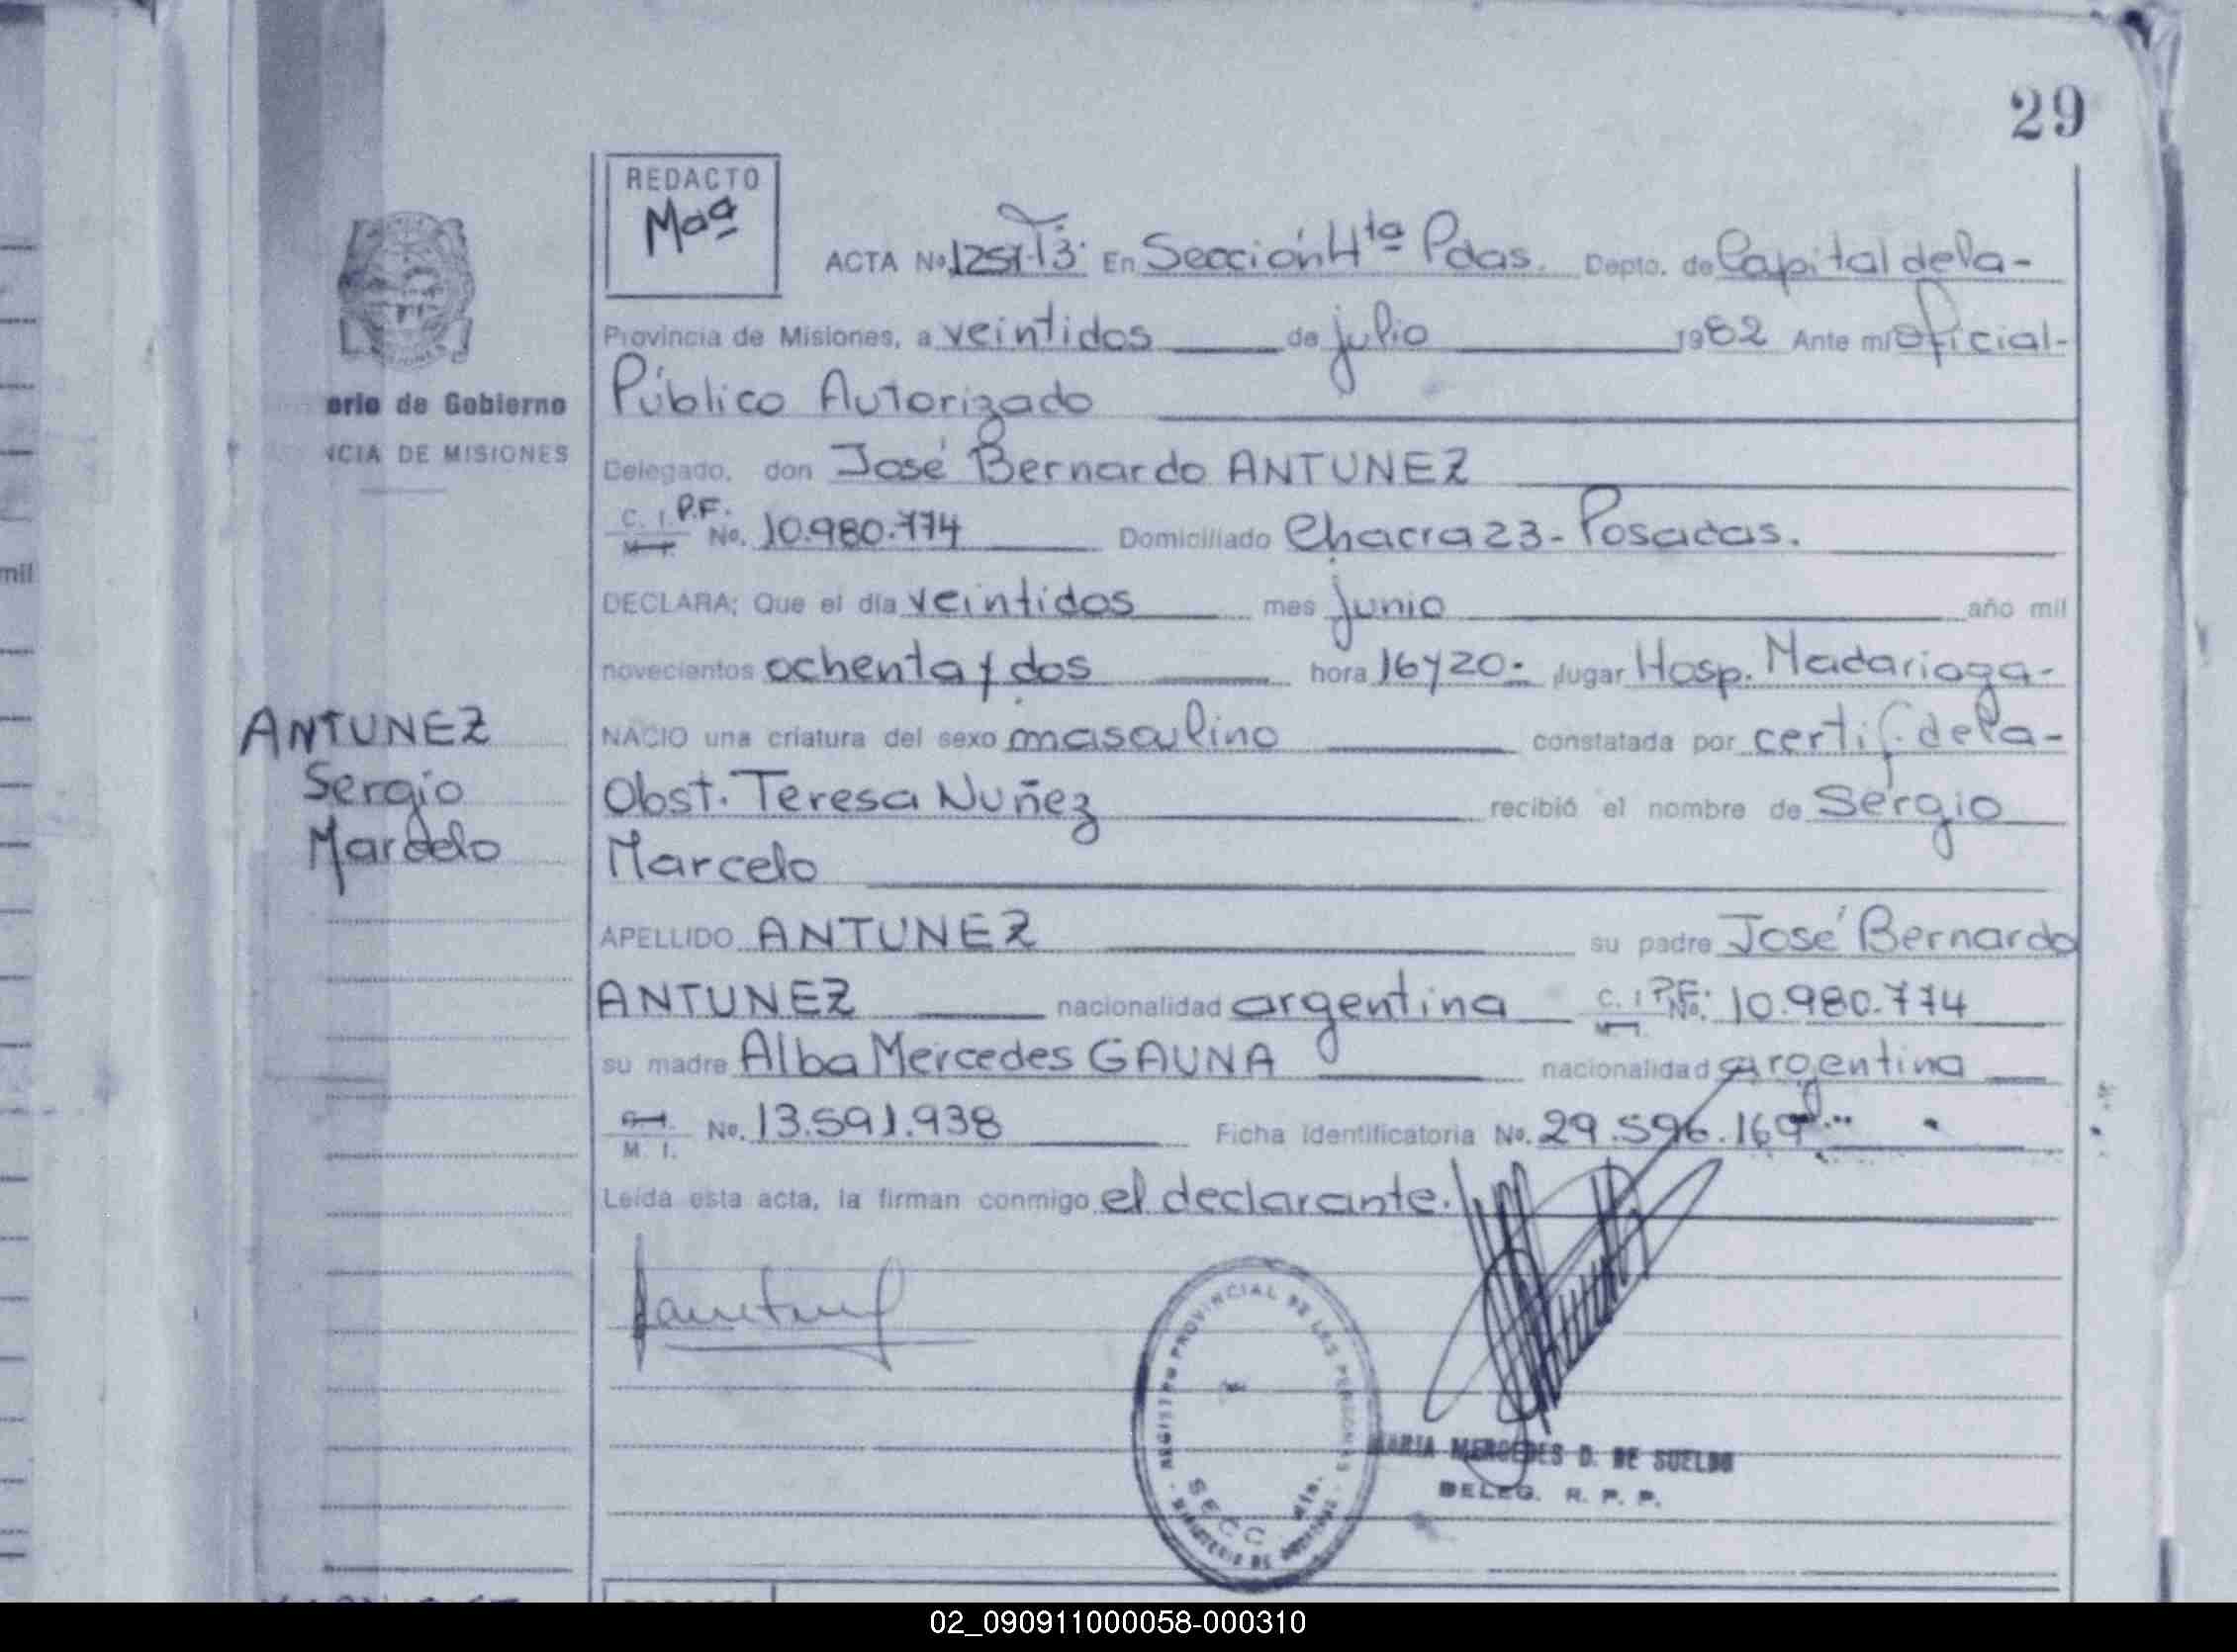 29
REDACTO
Mᵃª
ACTA Nº 1251-T3· En Sección 4ᵗª Pdas. Depto. de Capital de la-
Provincia de Misiones, a veintidos de julio 1982 Ante mí oficial-
Público Autorizado
erio de Gobierno
NCIA DE MISIONES
Delegado, don José Bernardo ANTUNEZ
C. I. P.F. M. I. No. 10.980.774 Domiciliado Chacra 23- Posadas.
mil
DECLARA; Que el día veintidos mes junio año mil
novecientos ochenta y dos hora 16y20- lugar Hosp. Madariaga-
ANTUNEZ
Sergio
Marcelo
NACIO una criatura del sexo masculino constatada por certif. de la-
Obst. Teresa Nuñez recibió el nombre de Sergio
Marcelo
APELLIDO ANTUNEZ su padre José Bernardo
ANTUNEZ nacionalidad argentina C. I. P.F. M. I. No. 10.980.774
su madre Alba Mercedes GAUNA nacionalidad argentina
C. I. M. I. No. 13.591.938 Ficha Identificatoria No. 29.596.169
Leída esta acta, la firman conmigo el declarante.
REGISTRO PROVINCIAL DE LAS PERSONAS
SECC.
MINISTERIO DE GOBIERNO
MARIA MERCEDES D. DE SUELDO
DELEG. R. P. P.
02_090911000058-000310